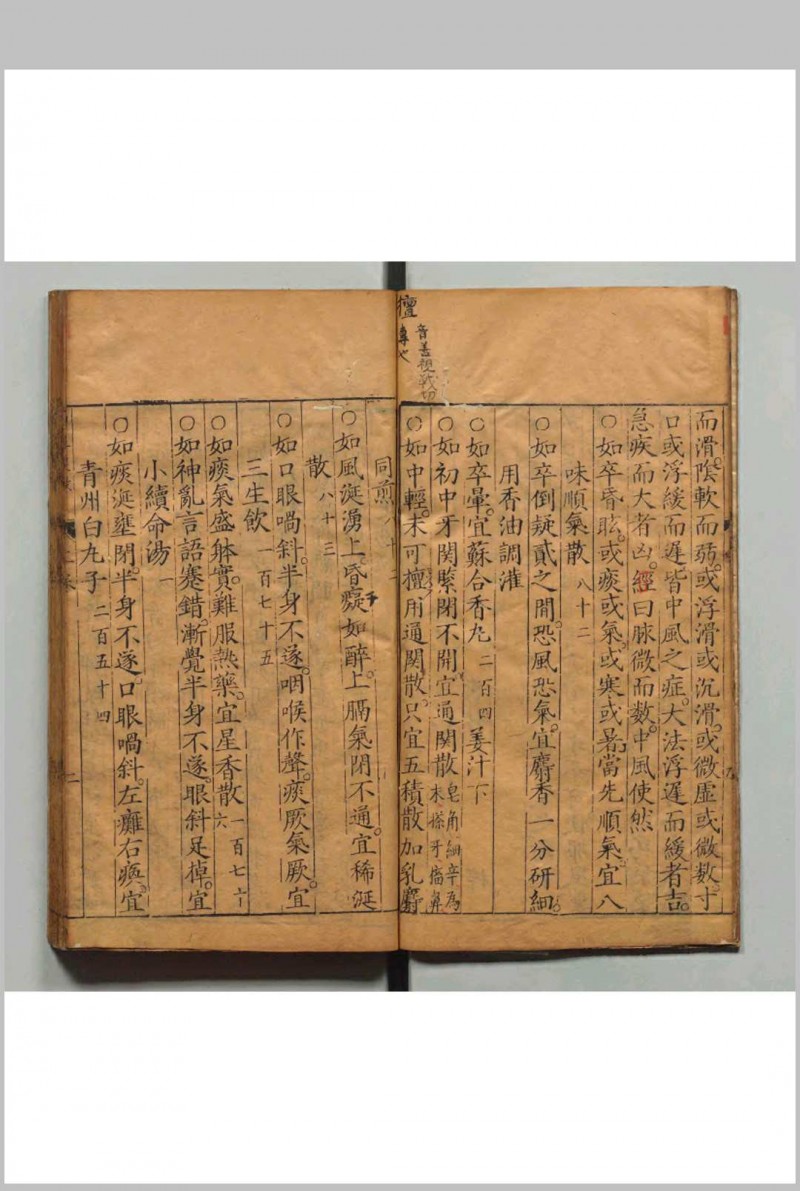 擅
音善視戰切
專也
而滑陰軟而弱或浮滑或沉滑或微虛或微數寸
口或浮緩而遲皆中風之症大法浮遲而緩者吉
急疾而大者凶經曰脉微而數中風使然
○如卒昏眩或痰或氣或寒或暑當先順氣宜八
味順氣散八十二
○如卒倒疑貳之間恐風恐氣宜麝香一分研細
用香油調灌
○如卒暈宜蘇合香丸二百四姜汁下
○如初中牙関緊閉不開宜通関散皂角細辛爲末搽牙㗜鼻
○如中輕未可擅用通関散只宜五積散加乳麝
同煎八十
○如風涎湧上昏癡如醉上膈氣閉不通宜稀涎
散八十三
○如口眼喎斜半身不遂咽喉作聲痰厥氣厥宜
三生飲一百七十五
○如痰氣盛躰實難服熱藥宜星香散一百七十六
○如神亂言語蹇錯漸覺半身不遂眼斜足掉宜
小續命湯一
○如痰涎壅閉半身不遂口眼喎斜左癱右瘓宜
青州白丸子二百五十四